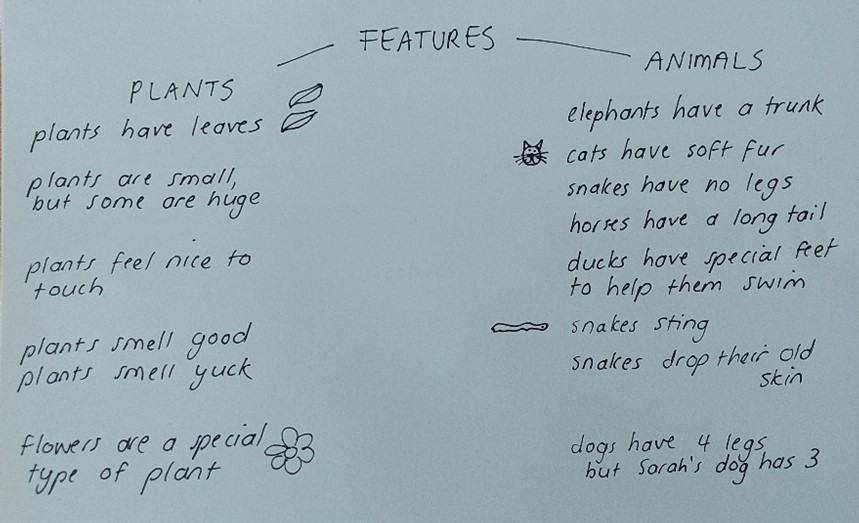 FEATURES
PLANTS
plants have leaves
plants are small,
but some are huge
plants feel nice to
touch
plants smell good
plants smell yuck
flowers are a special
type of plant
ANIMALS
elephants have a trunk
cats have soft fur
snakes have no legs
horses have a long tail
ducks have special feet
to help them swim
snakes sting
snakes drop their old
skin
dogs have 4 legs
but Sarah's dog has 3